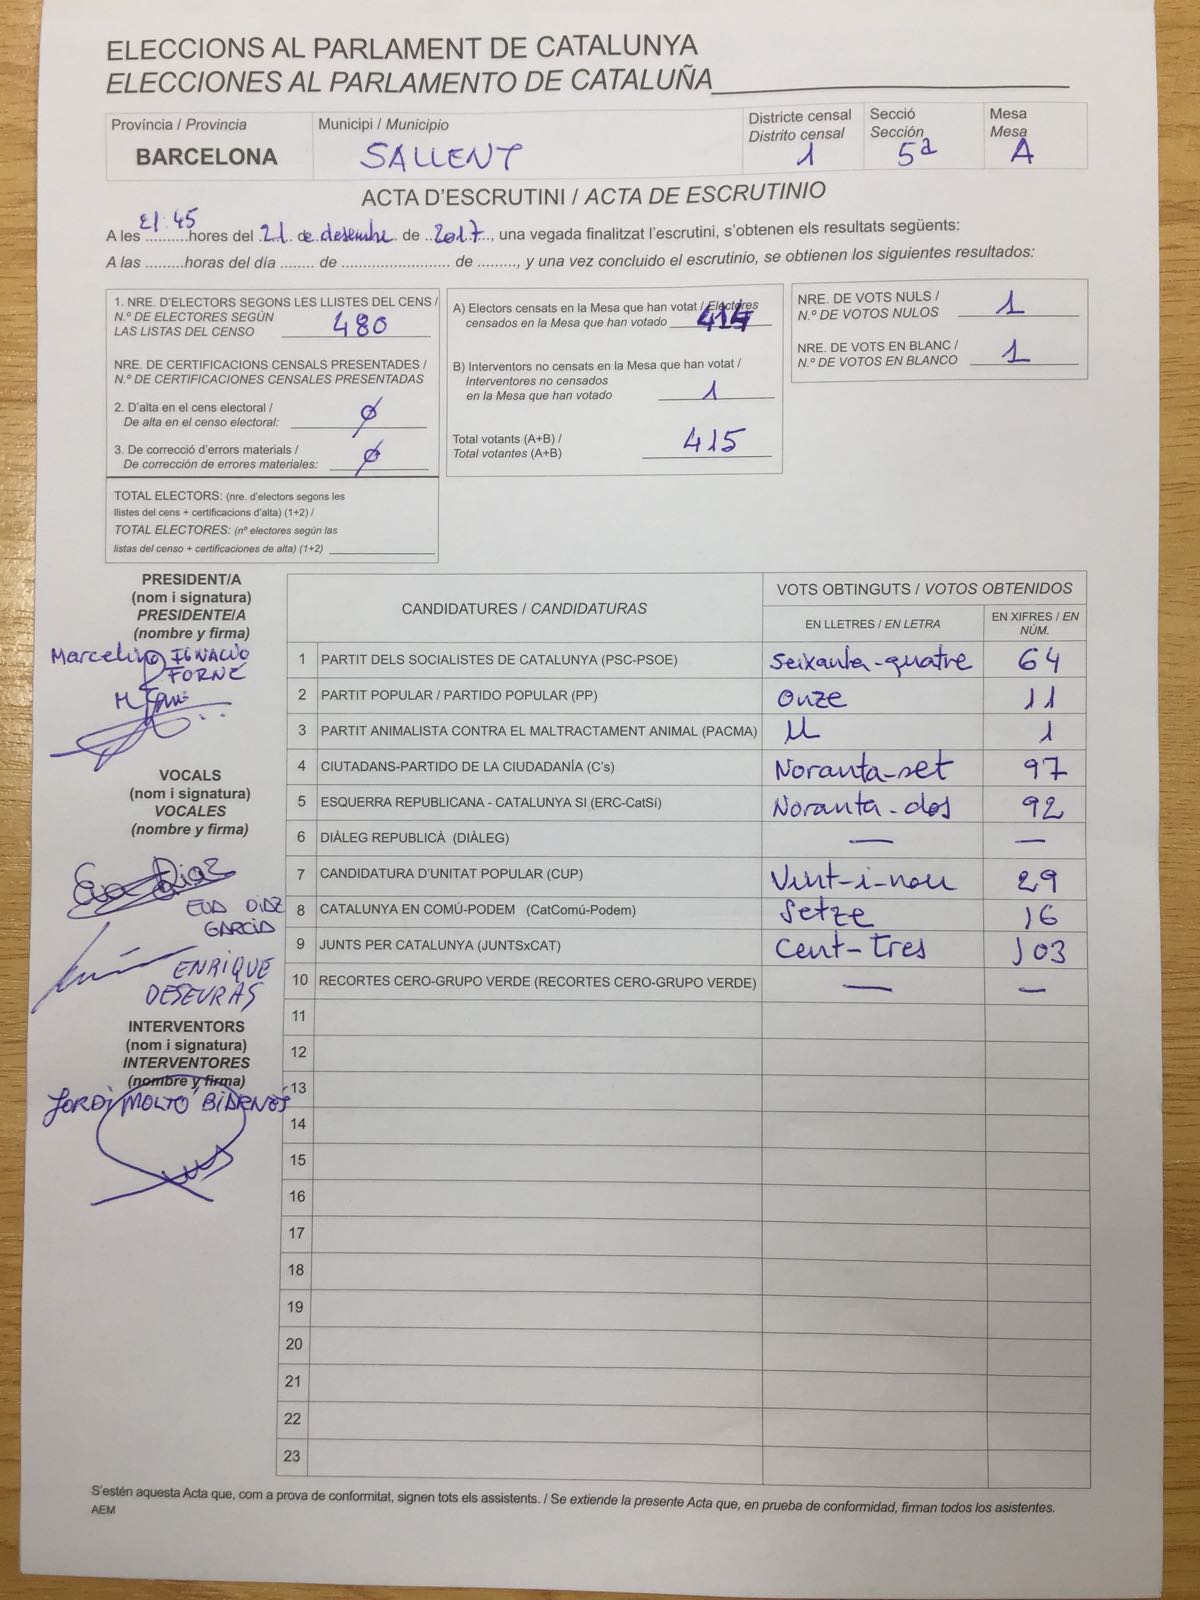 ELECCIONS AL PARLAMENT DE CATALUNYA
ELECCIONES AL PARLAMENTO DE CATALUÑA
Província / Provincia
BARCELONA
Municipi / Municipio
SALLENT
Districte censal
Distrito censal
1
Secció
Sección
5ª
Mesa
Mesa
A
ACTA D'ESCRUTINI / ACTA DE ESCRUTINIO
A les 21:45 hores del 21 de desembre de 2017, una vegada finalitzat l'escrutini, s'obtenen els resultats següents:
A las .........horas del día ........ de ......................... de ........., y una vez concluido el escrutinio, se obtienen los siguientes resultados:
1. NRE. D'ELECTORS SEGONS LES LLISTES DEL CENS /
N.º DE ELECTORES SEGÚN
LAS LISTAS DEL CENSO 480
NRE. DE CERTIFICACIONS CENSALS PRESENTADES /
N.º DE CERTIFICACIONES CENSALES PRESENTADAS
2. D'alta en el cens electoral /
De alta en el censo electoral: Ø
3. De correcció d'errors materials /
De corrección de errores materiales: Ø
TOTAL ELECTORS: (nre. d'electors segons les
llistes del cens + certificacions d'alta) (1+2) /
TOTAL ELECTORES: (nº electores según las
listas del censo + certificaciones de alta) (1+2)
A) Electors censats en la Mesa que han votat / Electores
censados en la Mesa que han votado 414
B) Interventors no censats en la Mesa que han votat /
Interventores no censados
en la Mesa que han votado 1
Total votants (A+B) /
Total votantes (A+B) 415
NRE. DE VOTS NULS /
N.º DE VOTOS NULOS 1
NRE. DE VOTS EN BLANC /
N.º DE VOTOS EN BLANCO 1
PRESIDENT/A
(nom i signatura)
PRESIDENTE/A
(nombre y firma)
Marcelino IGNACIO
FORNE
VOCALS
(nom i signatura)
VOCALES
(nombre y firma)
Eva Diaz
EVA DIAZ
GARCIA
ENRIQUE
DESEURAS
INTERVENTORS
(nom i signatura)
INTERVENTORES
(nombre y firma)
JORDI MOLTÓ BIDARNÉS
CANDIDATURES / CANDIDATURAS
VOTS OBTINGUTS / VOTOS OBTENIDOS
EN LLETRES / EN LETRA
EN XIFRES / EN
NÚM.
1 PARTIT DELS SOCIALISTES DE CATALUNYA (PSC-PSOE) Seixanta-quatre 64
2 PARTIT POPULAR / PARTIDO POPULAR (PP) Onze 11
3 PARTIT ANIMALISTA CONTRA EL MALTRACTAMENT ANIMAL (PACMA) U 1
4 CIUTADANS-PARTIDO DE LA CIUDADANÍA (C's) Noranta-set 97
5 ESQUERRA REPUBLICANA - CATALUNYA SI (ERC-CatSí) Noranta-dos 92
6 DIÀLEG REPUBLICÀ (DIÀLEG) — —
7 CANDIDATURA D'UNITAT POPULAR (CUP) Vint-i-nou 29
8 CATALUNYA EN COMÚ-PODEM (CatComú-Podem) Setze 16
9 JUNTS PER CATALUNYA (JUNTSxCAT) Cent-tres 103
10 RECORTES CERO-GRUPO VERDE (RECORTES CERO-GRUPO VERDE) — —
11
12
13
14
15
16
17
18
19
20
21
22
23
S'estén aquesta Acta que, com a prova de conformitat, signen tots els assistents. / Se extiende la presente Acta que, en prueba de conformidad, firman todos los asistentes.
AEM